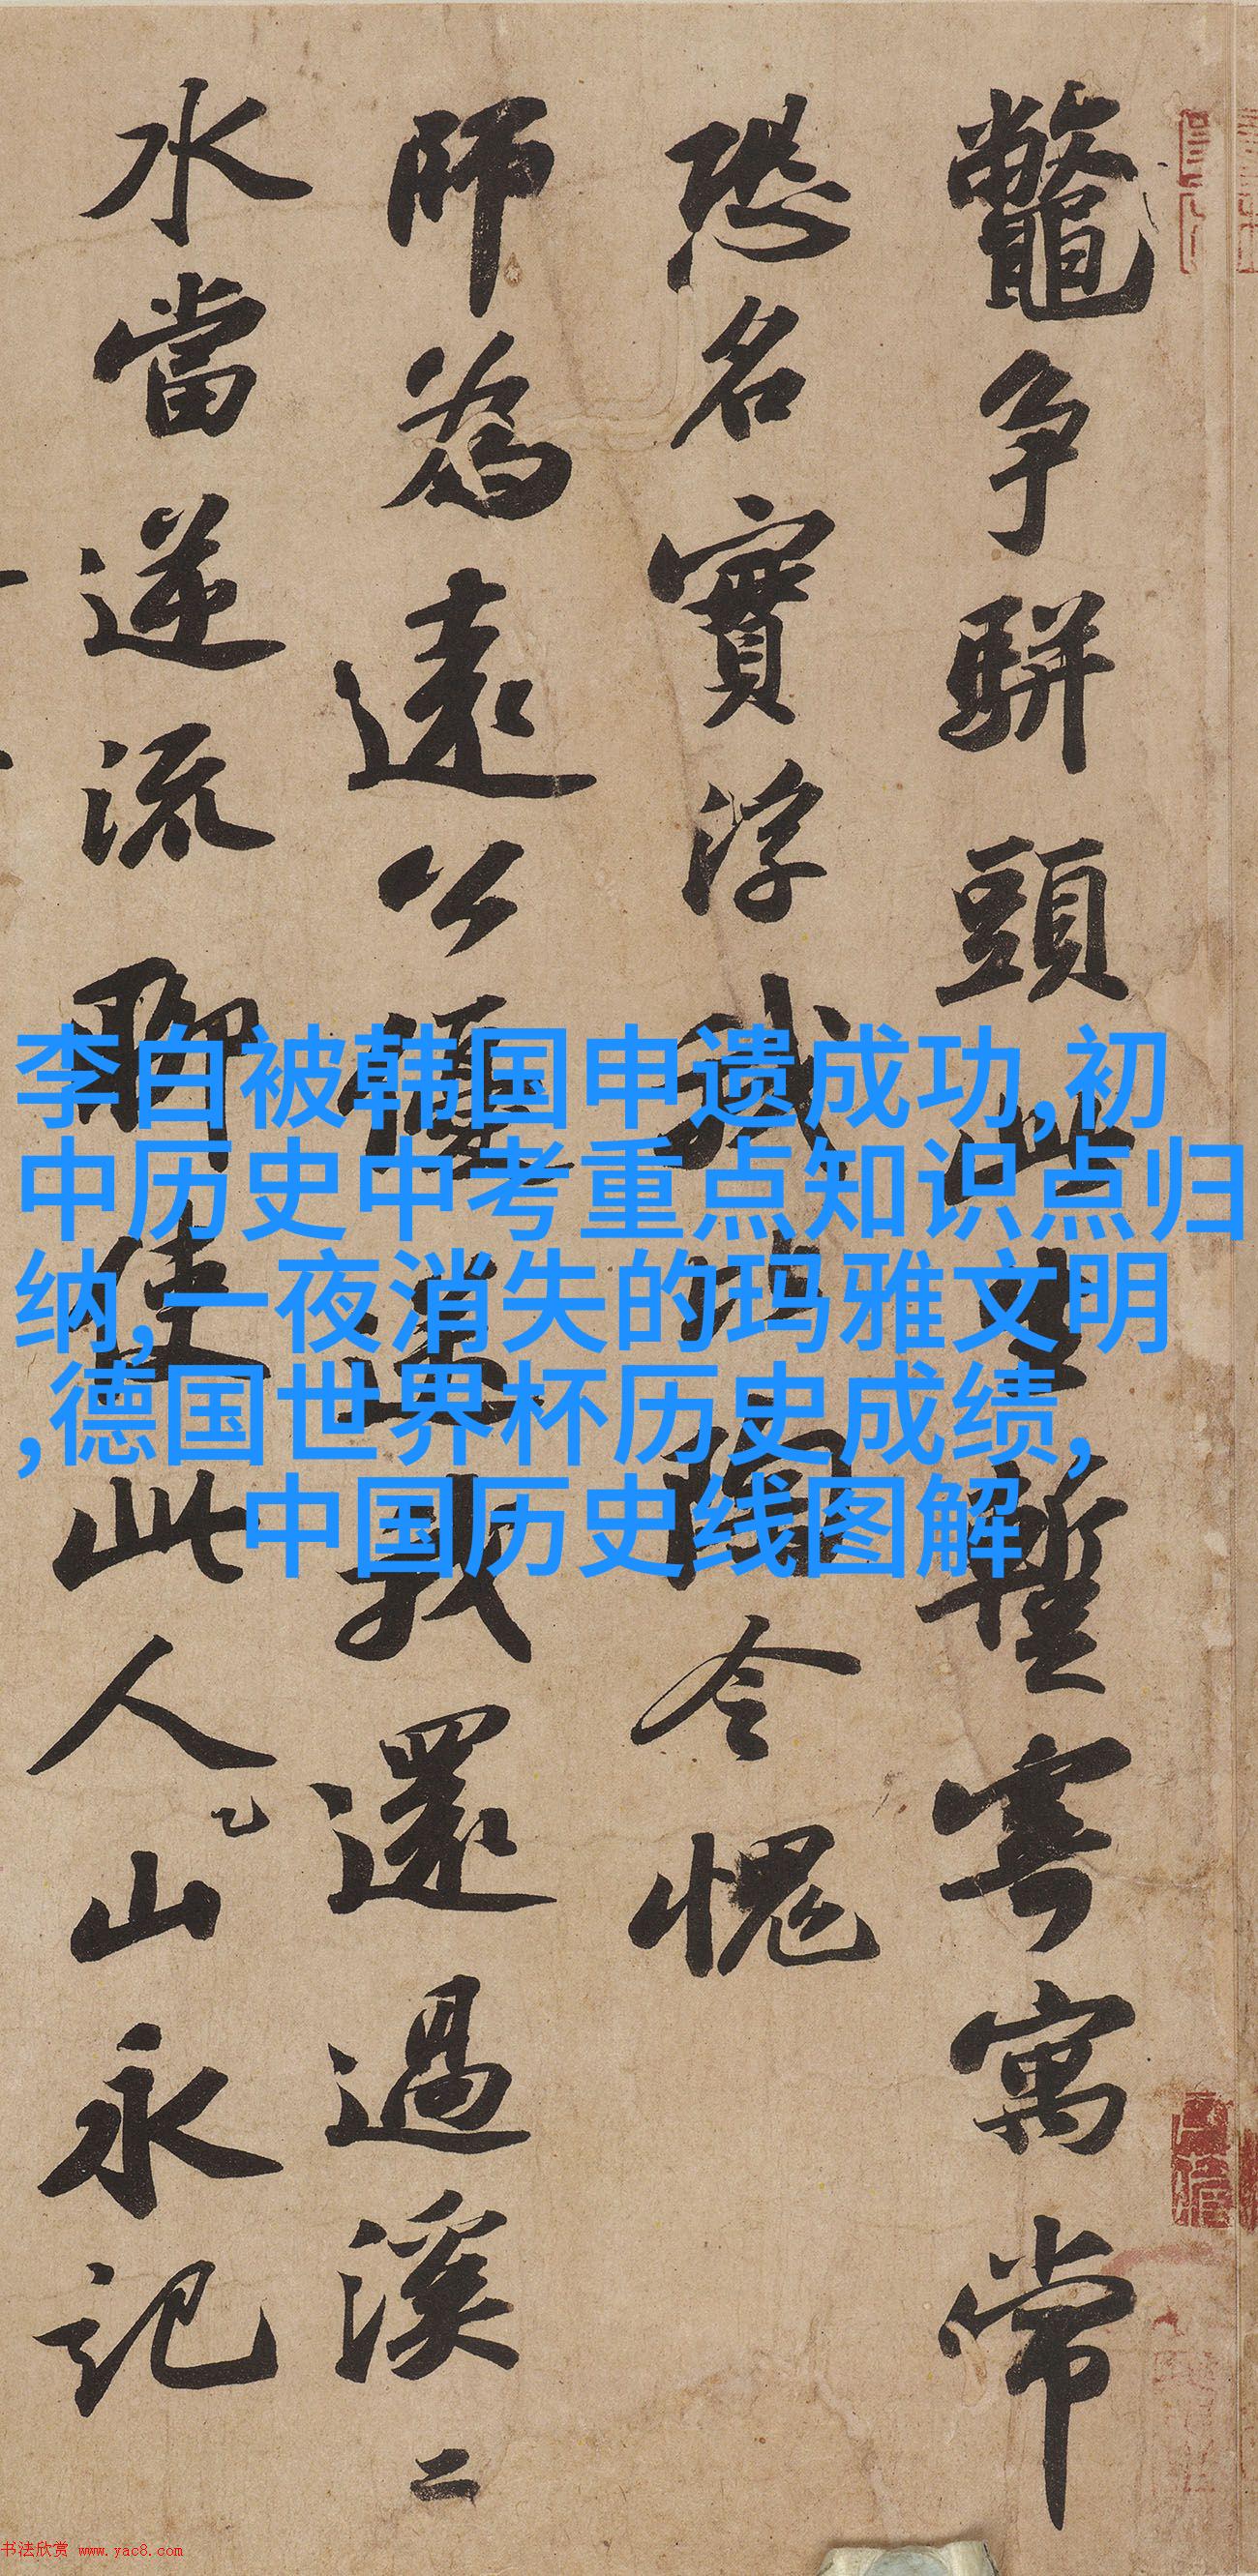 鼈争駢頭此生暫寄寓常
恐名實浮我比陶令愧
師為遠公優送我還過溪二
水當逆流聊使此人山永記
李白被韩国申遗成功,初
中历史中考重点知识点归
纳,一夜消失的玛雅文明
,德国世界杯历史成绩,
中国历史线图解
书法欣赏 www.yac8.com